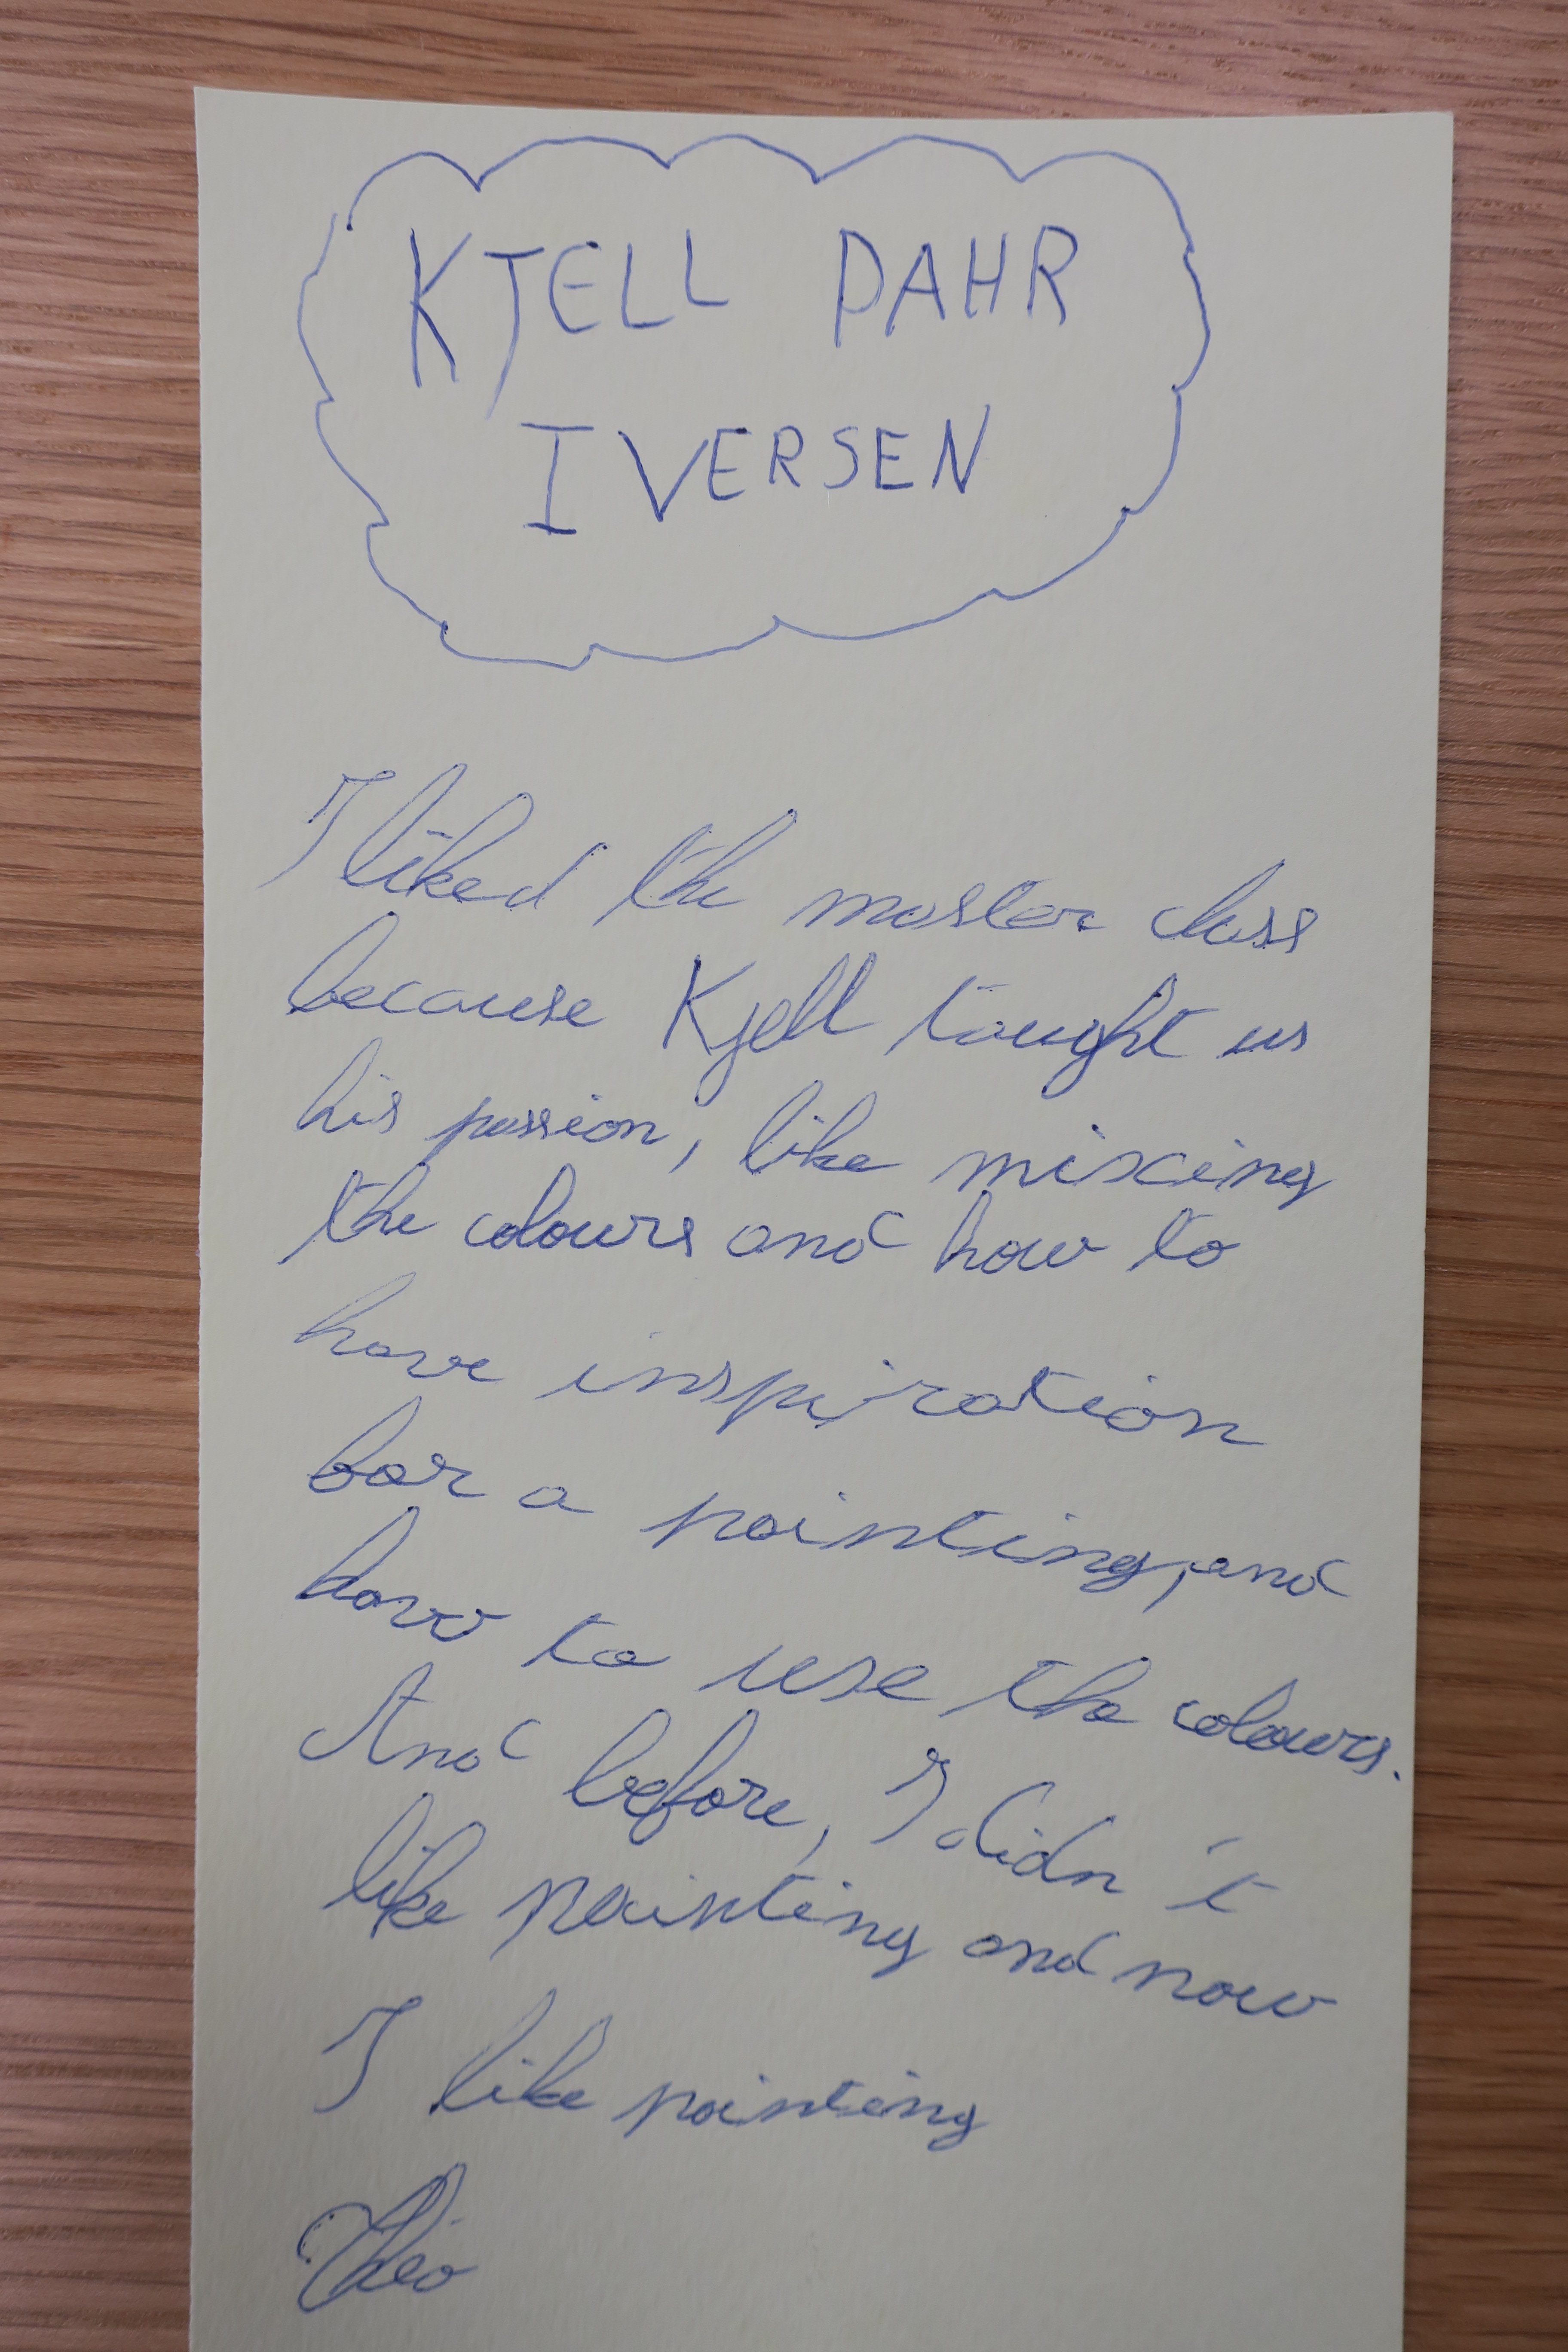 KJELL PAHR
IVERSEN
I liked the master class
because Kjell tought us
his passion, like mixing
the colours and how to
have inspiration
for a painting, and
how to use the colours.
And before, I didn't
like painting and now
I like painting
Théo